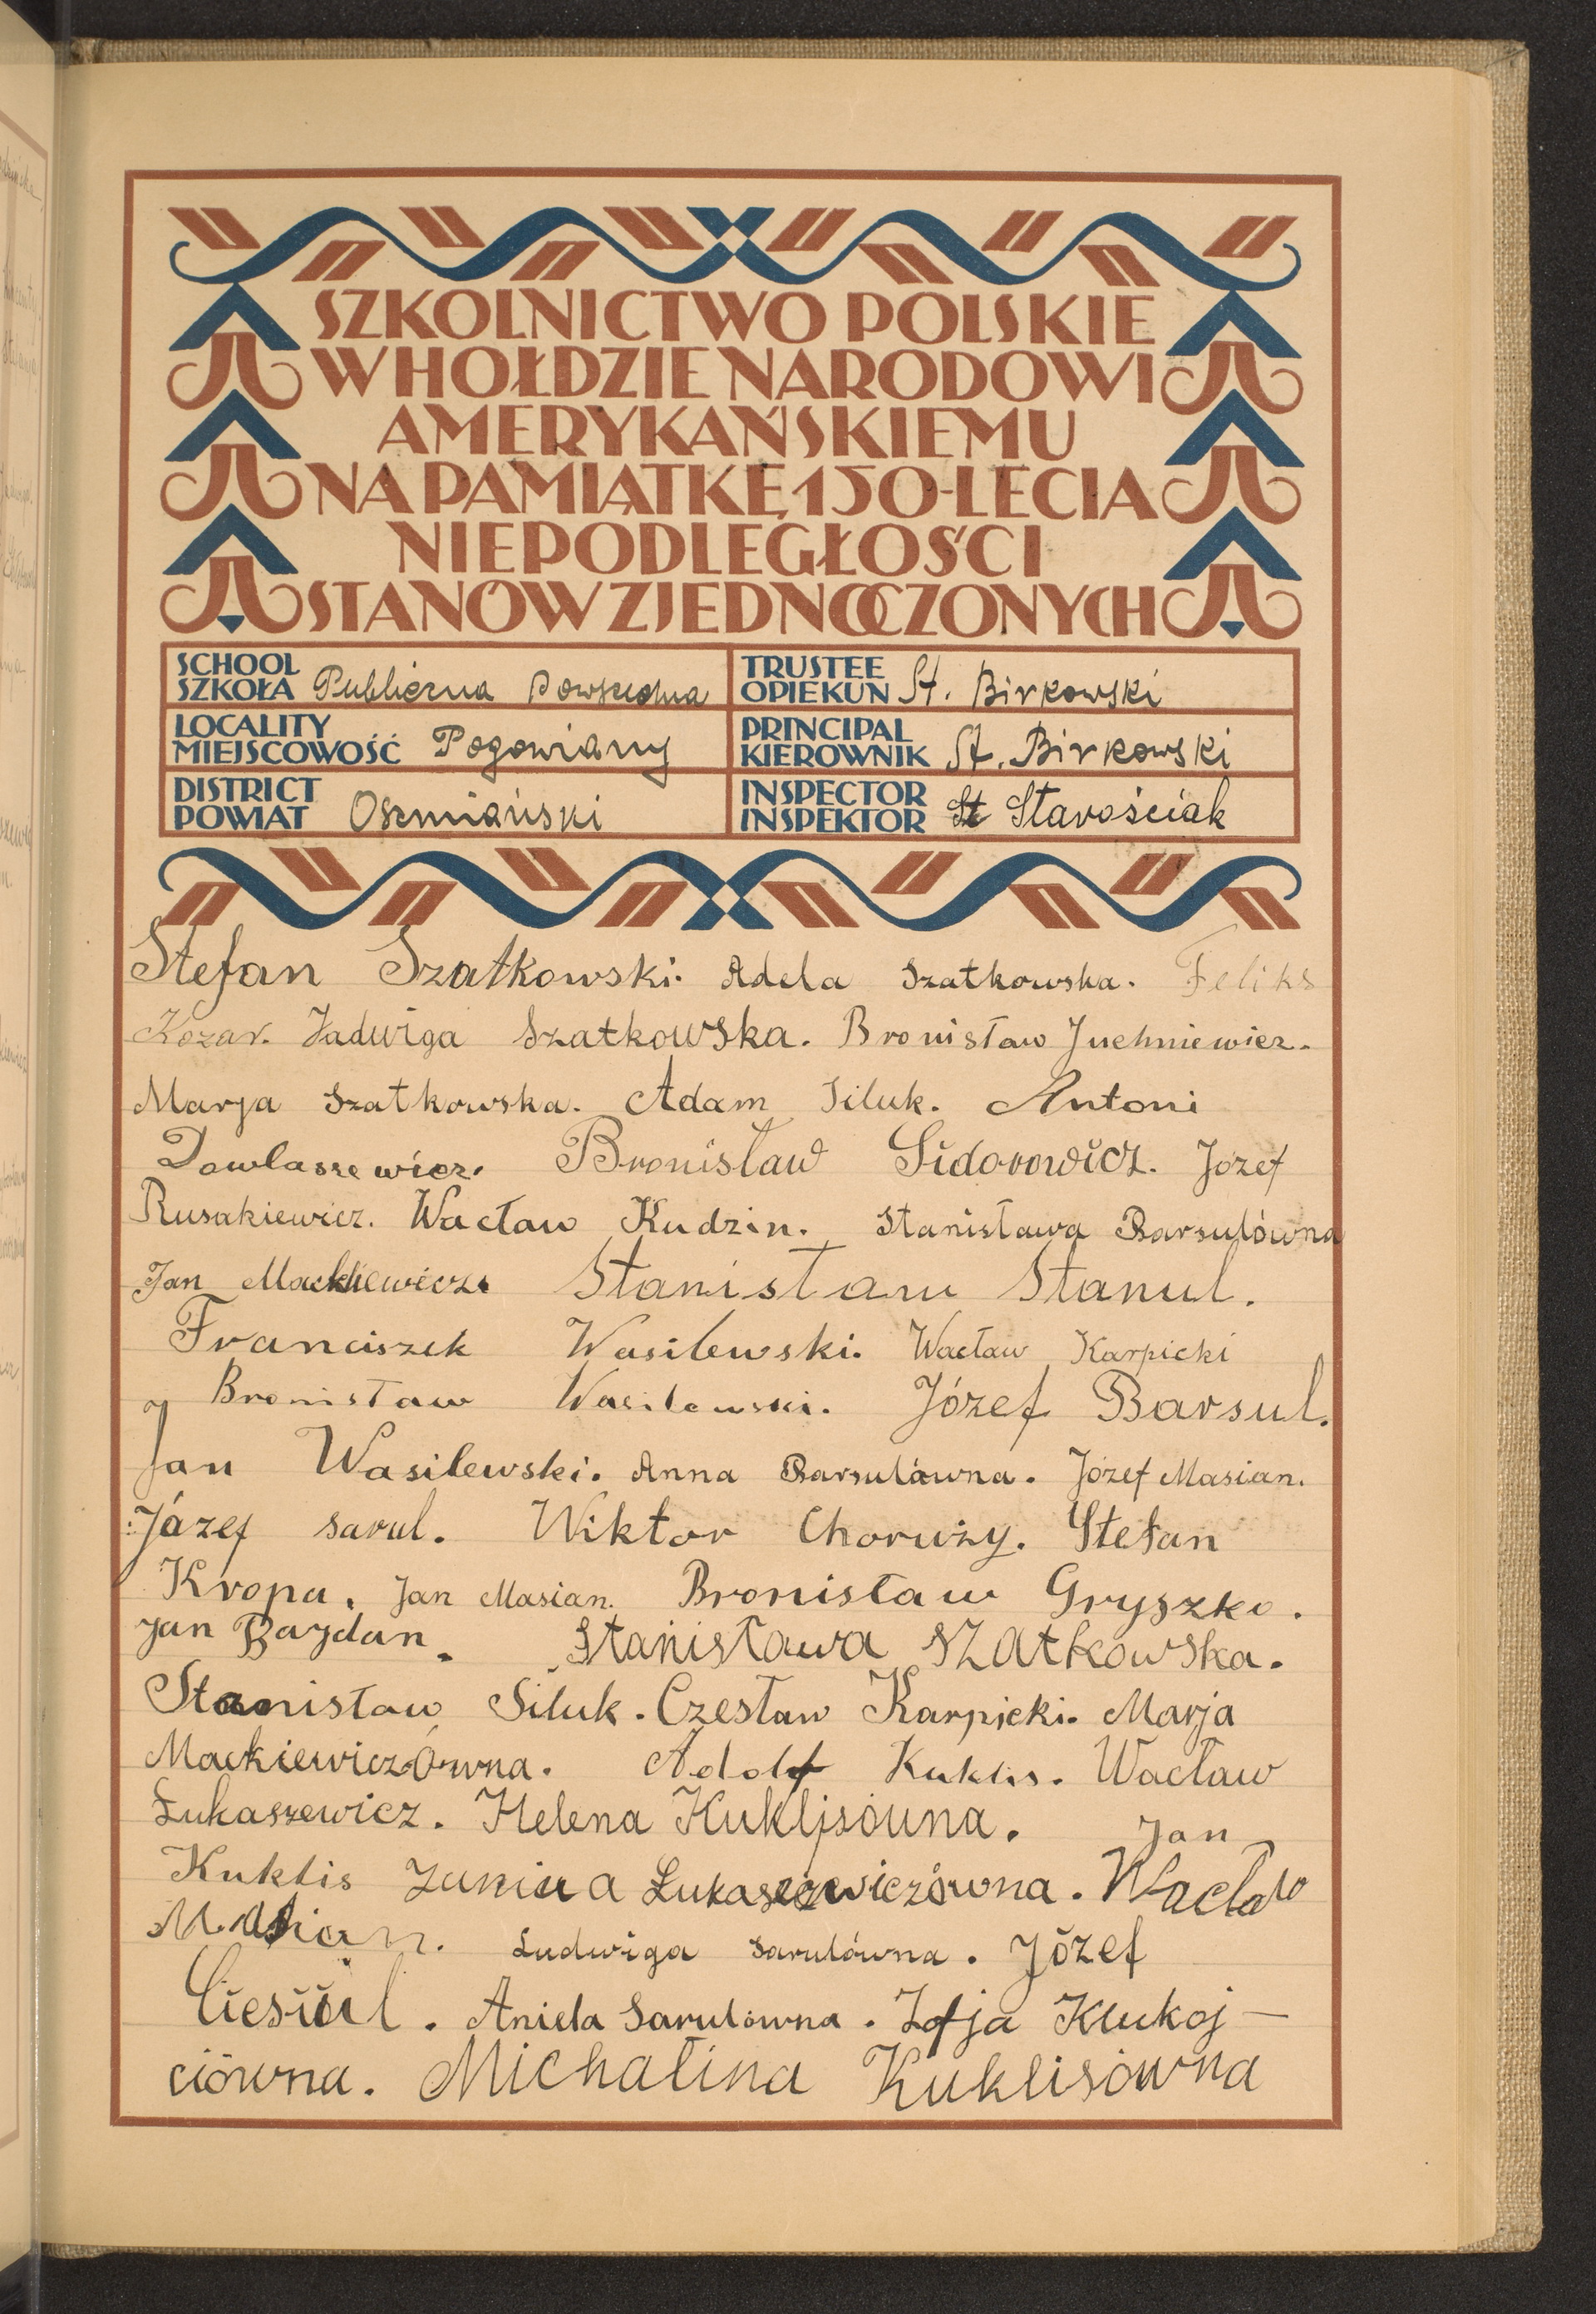 SZKOLNICTWO POLSKIE
W HOŁDZIE NARODOWI
AMERYKAŃSKIEMU
NA PAMIĄTKĘ 150-LECIA
NIEPODLEGŁOŚCI
STANÓW ZJEDNOCZONYCH
SCHOOL
SZKOŁA Publiczna Powszechna
TRUSTEE
OPIEKUN St. Birkowski
LOCALITY
MIEJSCOWOŚĆ Pogowiany
PRINCIPAL
KIEROWNIK St. Birkowski
DISTRICT
POWIAT Oszmiański
INSPECTOR
INSPEKTOR St Starościak
Stefan Szatkowski. Adela Szatkowska. Feliks
Kozar. Jadwiga Szatkowska. Bronisław Juchniewicz.
Marja Szatkowska. Adam Siluk. Antoni
Dowlaszewicz. Bronisław Sidorowicz. Józef
Rusakiewicz. Wacław Kudzin. Stanisława Barsulówna
Jan Mackiewicz. Stanisław Stanul.
Franciszek Wasilewski. Wacław Karpicki
Bronisław Wasilewski. Józef Barsul.
Jan Wasilewski. Anna Barsulówna. Józef Masian.
Józef Sarul. Wiktor Choruży. Stefan
Kropa. Jan Masian. Bronisław Gryszko.
Jan Bajdan. Stanisława Szatkowska.
Stanisław Siluk. Czesław Karpicki. Marja
Mackiewiczówna. Adolf Kuklis. Wacław
Łukaszewicz. Helena Kuklisówna. Jan
Kuklis Janina Łukaszewiczówna. Wacław
Masian. Ludwiga Sarulówna. Józef
Ciesiul. Aniela Sarulówna. Zofja Klukoj-
ciówna. Michalina Kuklisówna